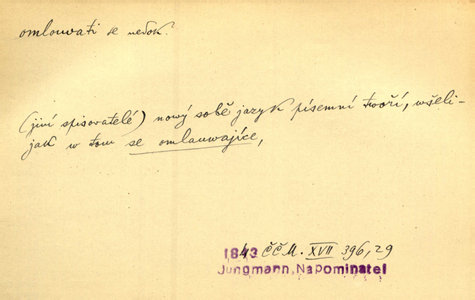 omlouvati se nedok.
(jiní spisovatelé) nový sobě jazyk písemní tvoří, wšeli-
jak w tom se omlauwajíce,
1843 ČČM. XVII 396,29
Jungmann, Napominatel